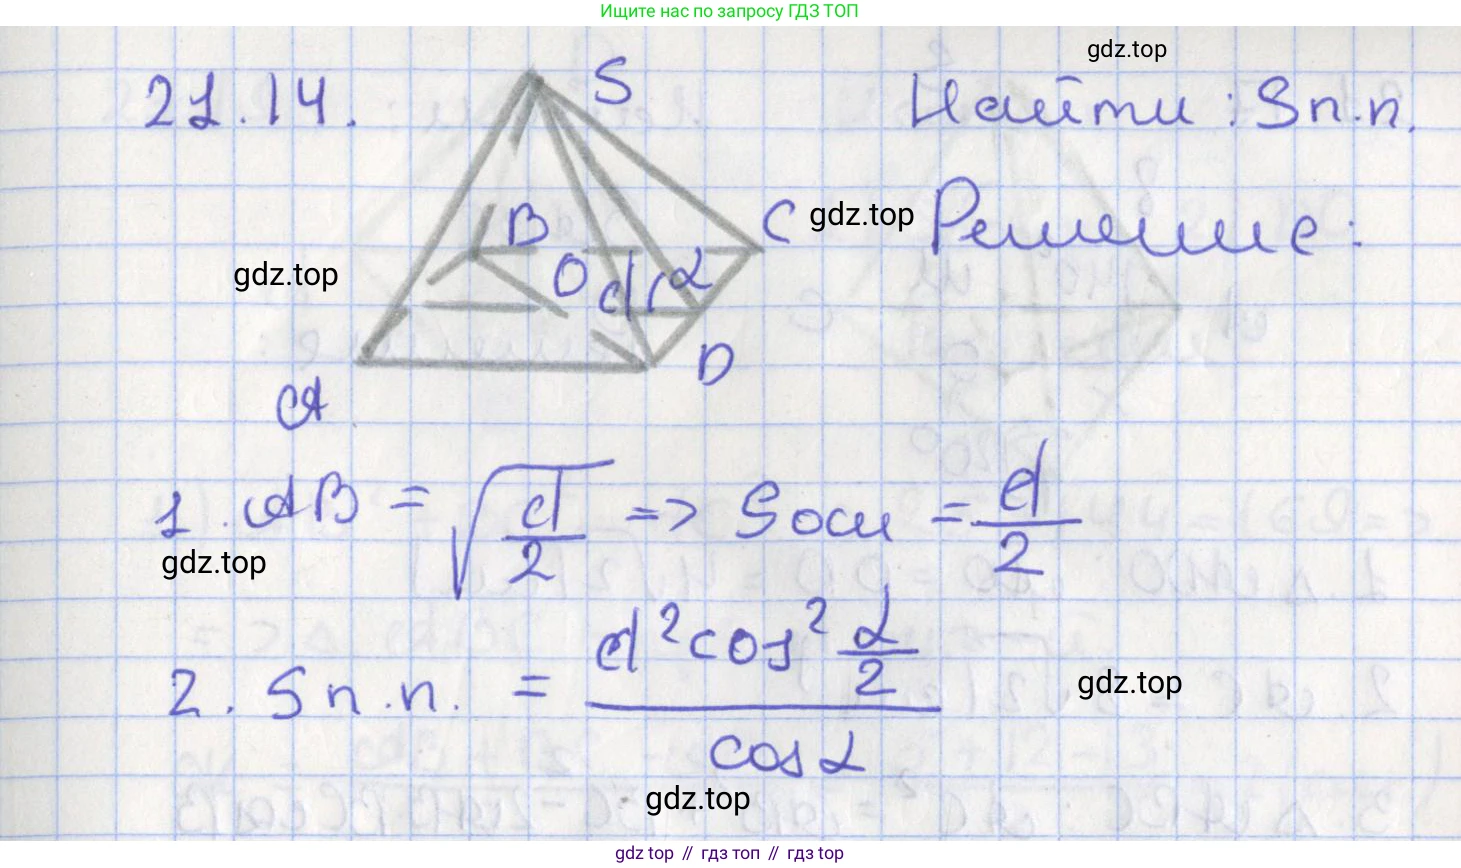 Ищите нас по запросу ГДЗ ТОП
gdz.top
21.14.
S
Найти : Sп.п.
B
C
gdz.top
Решение :
gdz.top
O
d
α
D
A
1. AB = √(d/2) => Sосн = d/2
gdz.top
2. Sп.п. = (d² cos² α/2) / cos α
gdz.top
gdz.top
gdz top // гдз топ // гдз top